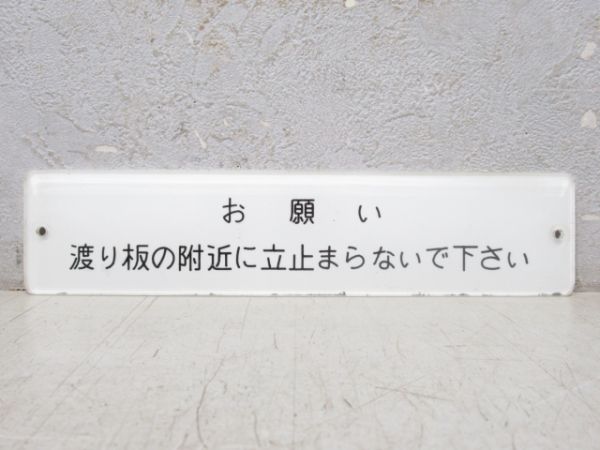 お願い
渡り板の附近に立止まらないで下さい